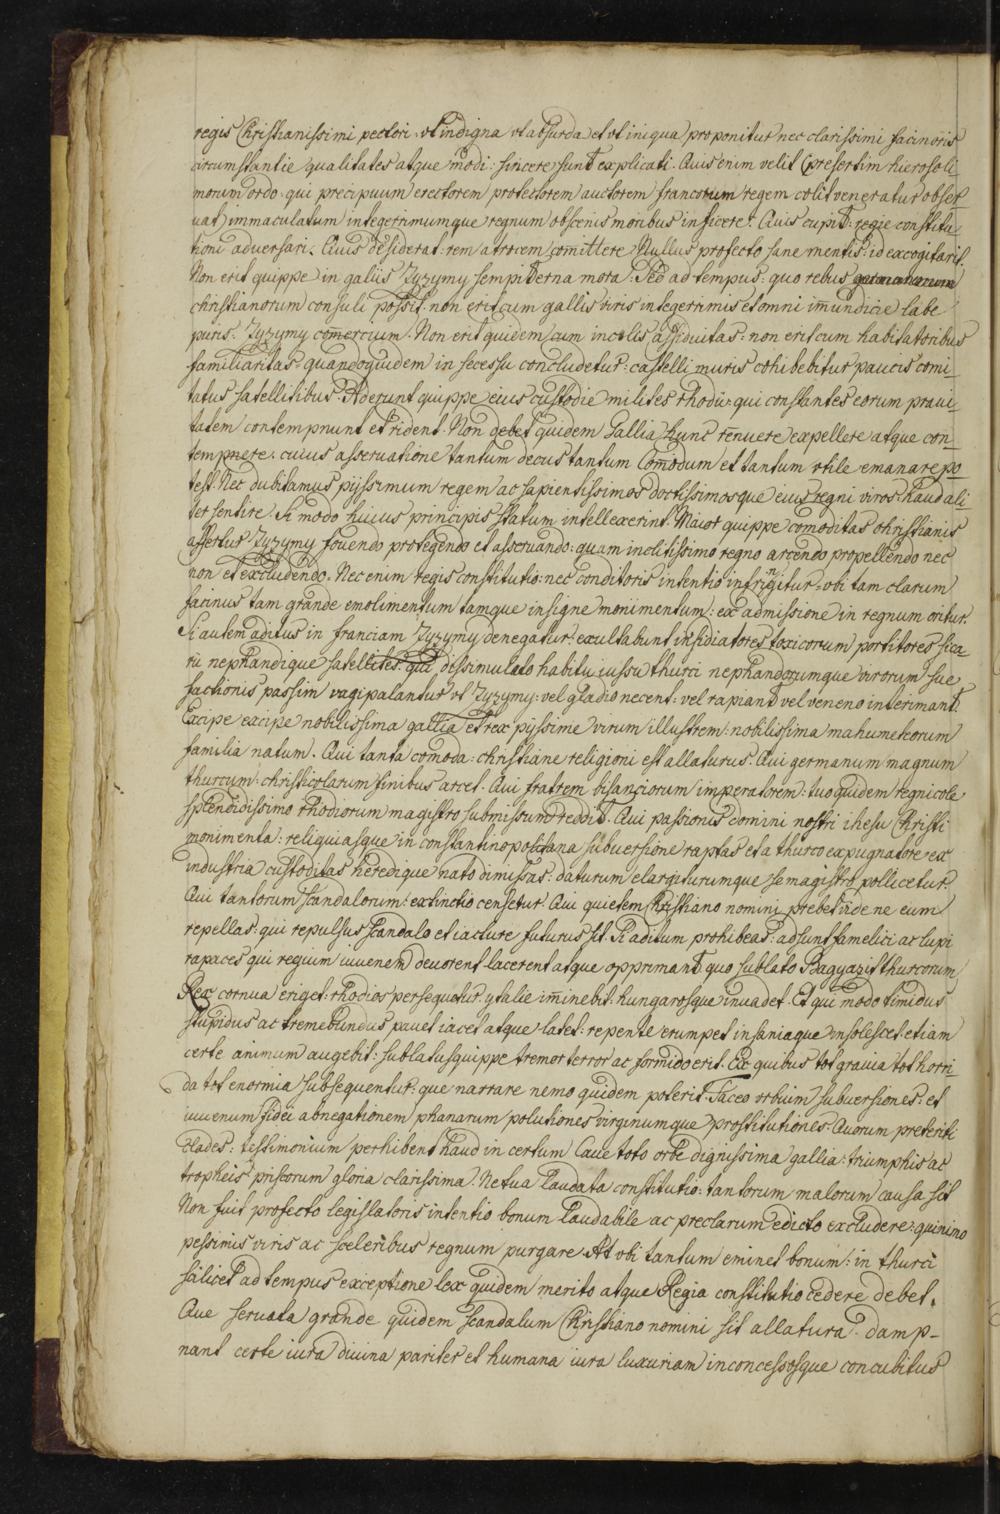 regis Christianissimi pectori: vt indigna vt absurda et vt iniqua proponitur nec clarissimi facinoris
circumstantie qualitates atque modi: sincere sunt explicati. Quis enim velit (presertim hierosoli-
morum ordo qui precipuum erectorem protectorem auctorem francorum regem colit veneratur obser-
uat) immaculatum integerrimumque regnum obscenis moribus inficere? Quis cupit: regie constitu-
tioni adversari. Quis desiderat: rem atrocem comittere? Nullus profecto sane mentis: id excogitarit.
Non erit quippe in galiis Zyzymy sempiterna mora. Sed ad tempus: quo rebus
christianorum consuli possit. non erit cum gallis viris integerrimis et omni immundicie labe
puris: Zyzymy comercium. Non erit quidem cum incolis assiduitas: non erit cum habitatoribus
familiaritas quandoquidem in secessu concludetur: castelli muris cohibebitur paucis comi-
tatus satellitibus. Aderunt quippe eius custodie milites rhodii: qui constantes eorum praui-
tatem contempnunt et rident. Non debet quidem Gallia hunc rennuere expellere atque con-
tempnere: cuius asseruatione tantum decus tantum Comodum et tantum vtile emanare po-
test. Nec dubitamus pijssimum regem ac sapientissimos doctissimosque eius regni viros haud ali-
ter sentire. Si modo huius principis statum intellexerint. Maior quippe comoditas christianis
affertur Zyzymy fouendo protegendo et asseruando: quam inclitissimo regno arcendo propellendo nec
non et excludendo. Nec enim regis constitutio: nec conditoris intentio infringitur. vbi tam clarum
facinus tam grande emolimentum tamque insigne monimentum: ex admissione in regnum oritur.
Si autem aditus in franciam Zyzymy denegatur: exultabunt insidiatores toxicorum portitores sica-
rii nephandique satellites. qui dissimulato habitu iussu thurci nephandorumque virorum sue
factionis passim vagi palantur vt Zyzymy: vel gladio necent: vel rapiant vel veneno interimant.
Excipe excipe nobilissima gallia et rex pijssime virum illustrem: nobilissima mahumeteorum
familia natum. Qui tanta comoda: christiane religioni est allaturus. Qui germanum magnum
thurcum: christicolarum finibus arcet. Qui fratrem bisanciorum imperatorem: tuo quidem regnicole
splendidissimo rhodiorum magistro submissum reddit. Qui passionis domini nostri ihesu Christi
monimenta: reliquiasque in constantinopolitana subuersione raptas et a thurco expugnatore ex
industria custoditas heredique nato dimissas: daturum elargiturumque se magistro pollicetur.
Qui tantorum scandalorum: extinctio censetur. Qui quietem Christiano nomini prebet vide ne eum
repellas: qui repulsus scandalo et iacture futurus sit. Si aditum prohibeas: adsunt famelici ac lupi
rapaces qui regium iuuenem deuorent lacerent atque opprimant quo sublato Bagyazit thurcorum
Rex cornua eriget: rhodios persequetur: ytalie imminebit: hungarosque inuadet. Et qui modo timidus
stupidus ac tremebundus pauet iacet atque latet: repente erumpet insaniaque insolescet etiam
certe animum augebit: sublatusquippe tremor terror ac formido erit. Ex quibus tot grauia tot horri-
da tot enormia subsequentur: que narrare nemo quidem poterit. Taceo vrbium subuersiones: et
iuuenum fidei abnegationem phanarum polutiones virginumque prostitutiones. Quorum preteriti
clades: testimonium perhibent haud in certum Caue toto orbe dignissima gallia: triumphis ac
tropheis priscorum gloria clarissima. Ne tua laudata constitutio: tantorum malorum causa sit
Non fuit profecto legislatoris intentio bonum laudabile ac preclarum edicto excludere: quinimo
pessimis viris ac sceleribus regnum purgare. At vbi tantum eminet bonum: in thurci
scilicet ad tempus exceptione lex quidem merito atque Regia constitutio cedere debet.
Que seruata grande quidem scandalum Christiano nomini sit allatura. damp-
nant certe iura diuina pariter et humana iura luxuriam inconcessosque concubitus